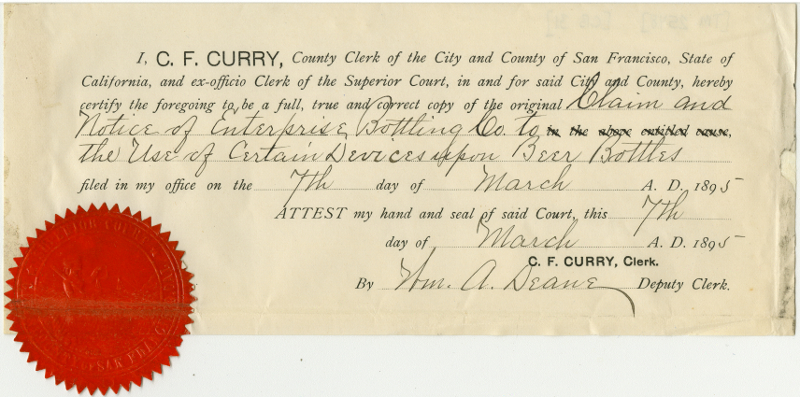 I, C. F. CURRY, County Clerk of the City and County of San Francisco, State of
California, and ex-officio Clerk of the Superior Court, in and for said City and County, hereby
certify the foregoing to be a full, true and correct copy of the original Claim and
Notice of Enterprise Bottling Co. to in the above entitled cause,
the Use of Certain Devices upon Beer Bottles
filed in my office on the 7th day of March A. D. 1895
ATTEST my hand and seal of said Court, this 7th
day of March A. D. 1895
C. F. CURRY, Clerk.
By Wm. A. Deane Deputy Clerk.